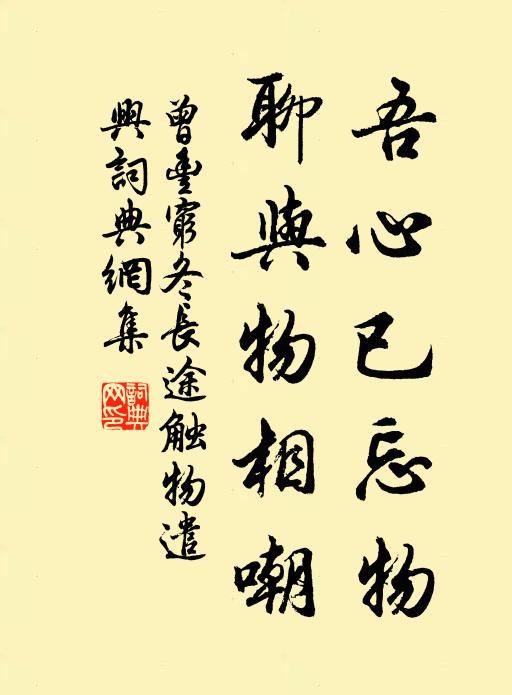 吾心已忘物
聊與物相嘲
曾豐窮冬長途触物遣
興詞典網集
詞典
网印